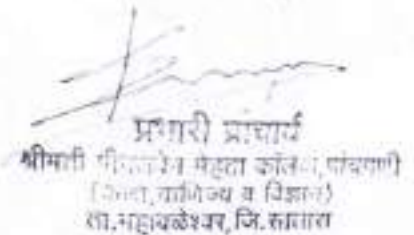 प्रभारी प्राचार्य
श्रीमती मीनलबेन मेहता कॉलेज, पांचगणी
(कला, वाणिज्य व विज्ञान)
ता.महाबळेश्वर, जि.सातारा